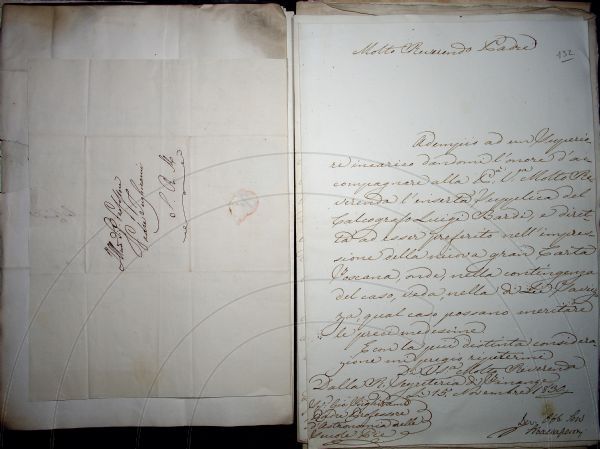 Padre Inghirami
S. P. M.
132
Molto Reverendo Padre
Adempio ad un Superio
re incarico dandomi l'onore d'ac
compagnare alla P.tà V.ra Molto Re
verenda l'inserta Supplica del
Calcografo Luigi Bardi, e diret
ta ad esser preferito nell'impres
sione della nuova gran Carta
Toscana onde, nella contingenza
del caso, veda, nella di Lei Saviez
za, qual caso possano meritare
le preci medesime.
E con la più distinta conside
razione mi pregio ripetermi
Di V.S.ra Molto Reverenda
Dalla R. Segreteria di Finanze
Li 15. Novembre
Inghirami
Padre Professore
d'Astronomia delle
Scuole Pie